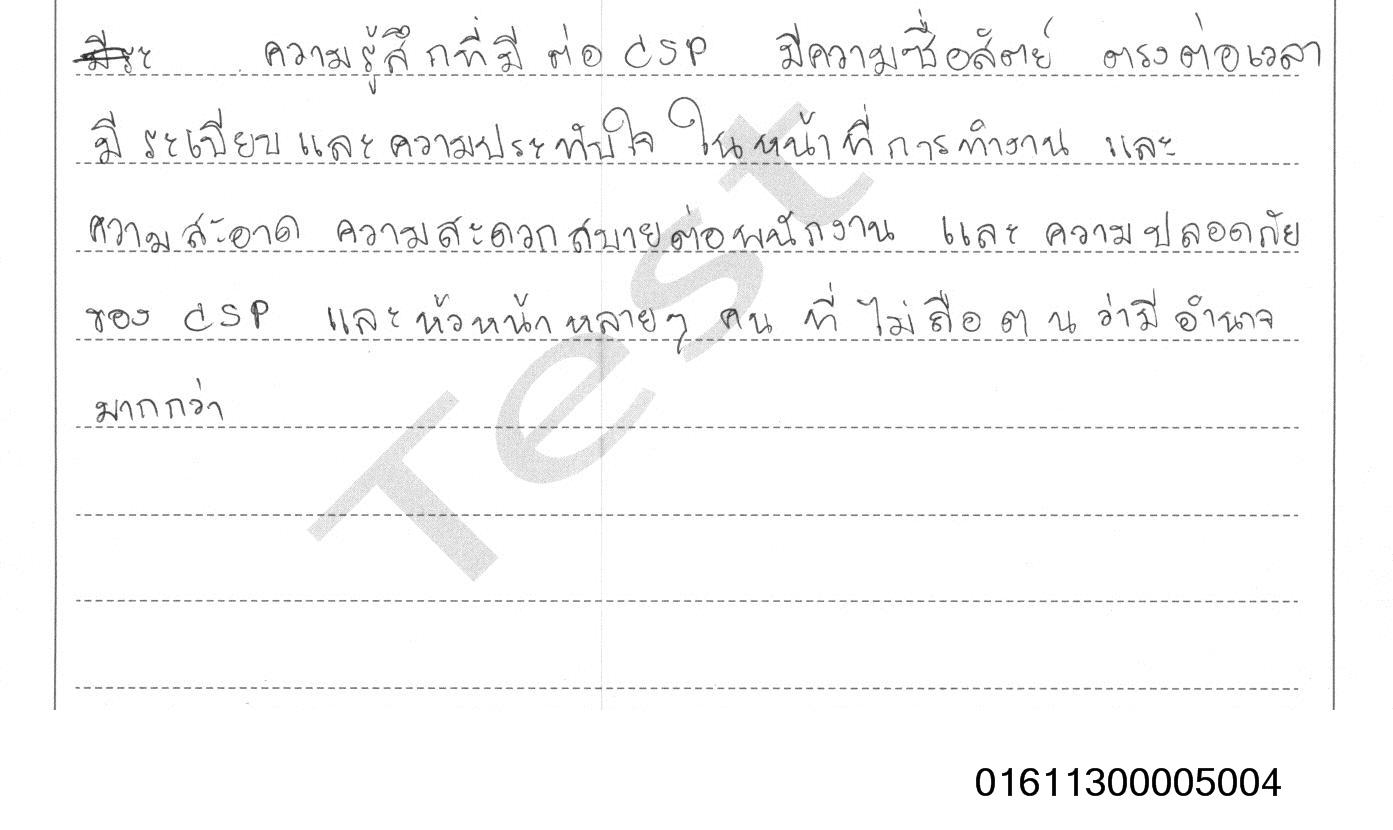 ความรู้สึกที่มี ต่อ CSP มีความซื่อสัตย์ ตรงต่อเวลา
มี ระเบียบ และ ความประทับใจ ในหน้าที่การทำงาน และ
ความสะอาด ความสะดวกสบายต่อพนักงาน และ ความปลอดภัย
ของ CSP และหัวหน้าหลายๆ คน ที่ ไม่ถือ ตน ว่ามี อำนาจ
มากกว่า
Test
01611300005004